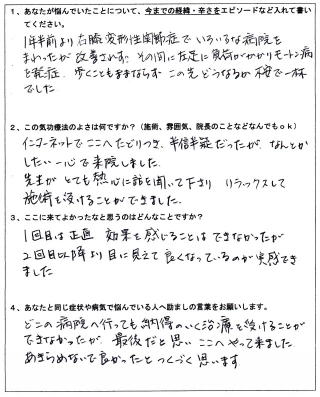 1、あなたが悩んでいたことについて、今までの経緯・辛さをエピソードなど入れて書い
てください。
1年半前より右膝変形性関節症でいろいろな病院を
まわったが改善されず、その間に左足に負荷がかかりモートン病
を発症、歩くこともままならず この先どうなるか不安で一杯
でした
2、この気功療法のよさは何ですか？（施術、雰囲気、院長のことなどなんでもｏｋ）
インターネットでここへたどりつき、半信半疑だったが、なんとか
したい一心で来院しました
先生が とても熱心に話を聞いて下さり リラックスして
施術を受けることができました。
3、ここに来てよかったなと思うのはどんなことですか？
1回目は正直 効果を感じることはできなかったが
2回目以降より目に見えて良くなっているのが実感でき
ました
4、あなたと同じ症状や病気で悩んでいる人へ励ましの言葉をお願いします。
どこの病院へ行っても納得のいく治療を受けることが
できなかったが、最後だと思いここへやって来ました
あきらめないで良かったとつくづく思います